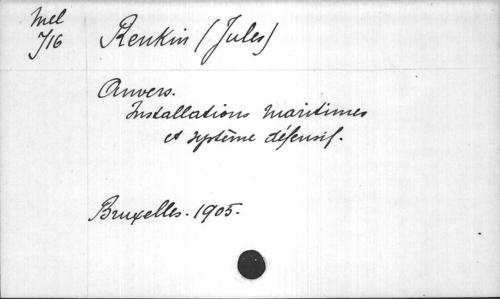 Mel
716
Renkin (Jules)
Anvers.
Installations maritimes
et système défensif.
Bruxelles. 1905.